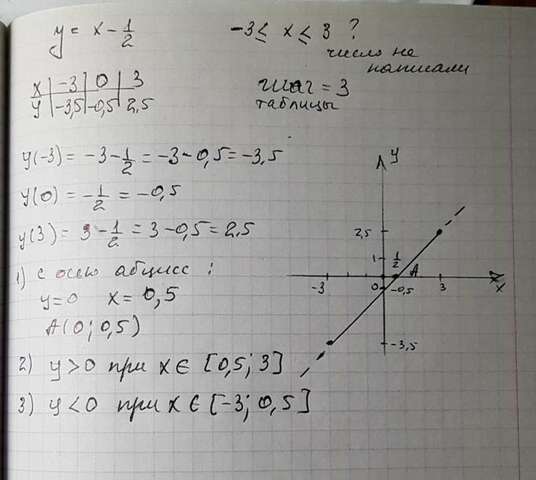 y = x - 1/2
-3 ≤ x ≤ 3 ?
число не
написали
x | -3 | 0 | 3
y | -3,5 | -0,5 | 2,5
шаг = 3
таблицы
y(-3) = -3 - 1/2 = -3 - 0,5 = -3,5
y(0) = -1/2 = -0,5
y(3) = 3 - 1/2 = 3 - 0,5 = 2,5
1) с осью абцисс :
y=0 x = 0,5
A(0; 0,5)
2) y>0 при x ∈ [0,5; 3]
3) y<0 при x ∈ [-3; 0,5]
y
2,5
1
1/2
A
-3
0
-0,5
3
x
-3,5